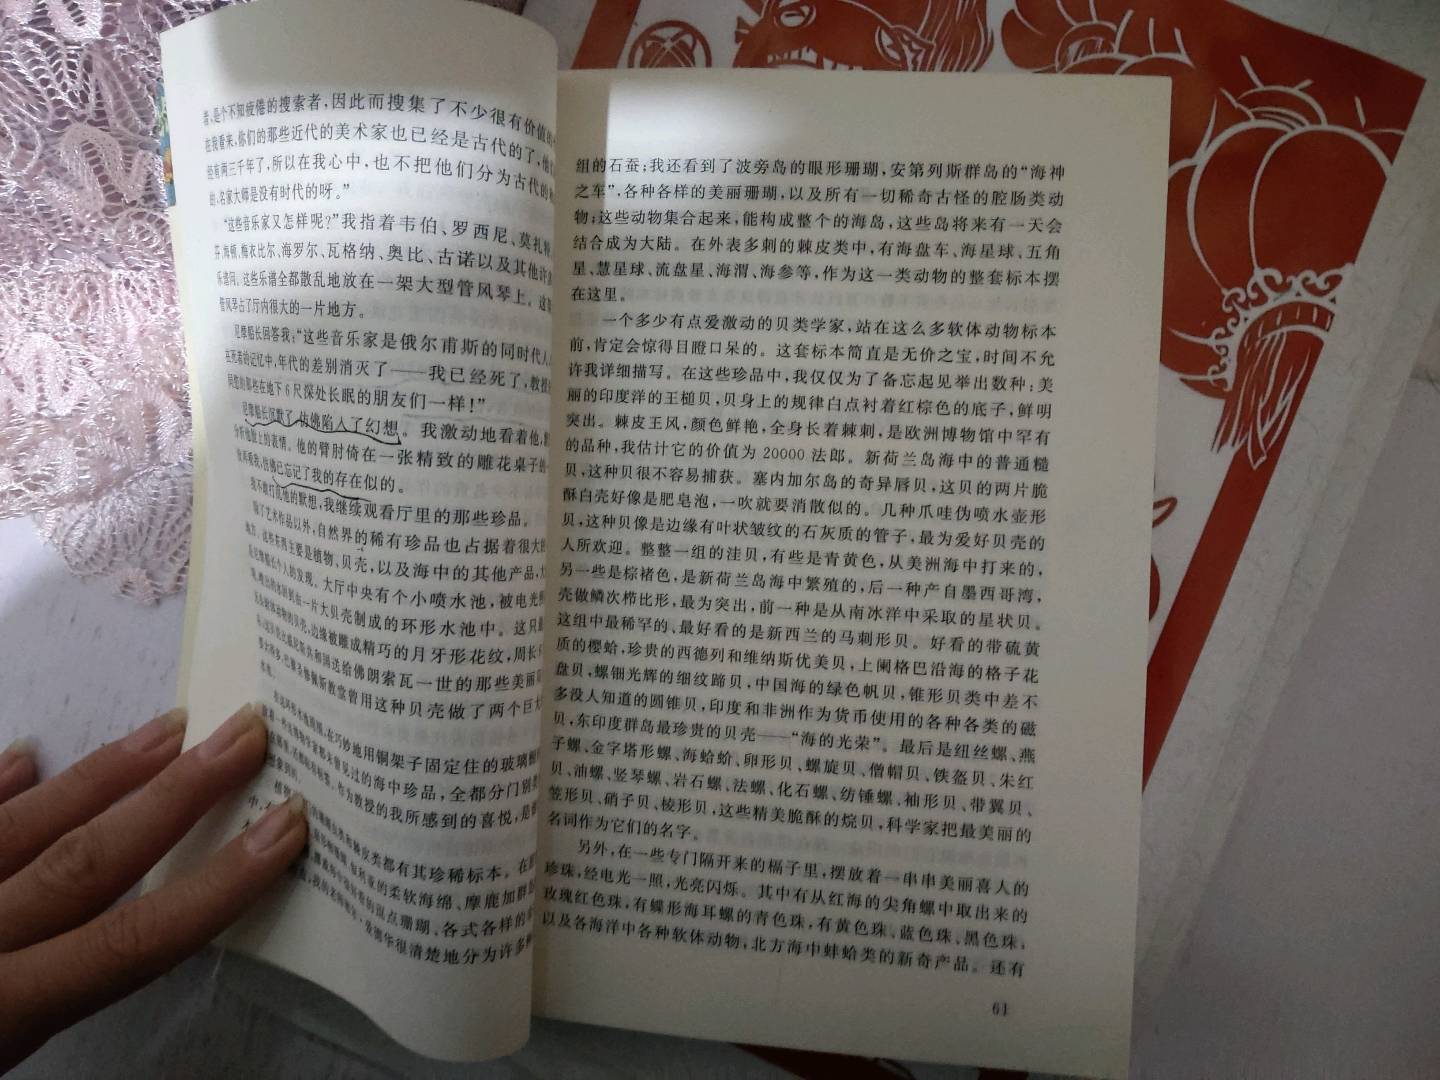 者,是个不知疲倦的搜索者,因此而搜集了不少很有价值的
在我看来,你们的那些近代的美术家也已经是古代的了,他们
经有两三千年了,所以在我心中,也不把他们分为古代的
名家大师是没有时代的呀。”
“这些音乐家又怎样呢?”我指着韦伯、罗西尼、莫扎特、
芬、海顿、梅衣比尔、海罗尔、瓦格纳、奥比、古诺以及其他许
乐谱问。这些乐谱全都散乱地放在一架大型管风琴上。这
管风琴占了厅内很大的一片地方。
尼摩船长回答我:“这些音乐家是俄尔甫斯的同时代人
在死者的记忆中,年代的差别消灭了——我已经死了,教授
同您的那些在地下6尺深处长眠的朋友们一样!”
尼摩船长沉默了,仿佛陷入了幻想。我激动地看着他,
分析他脸上的表情。他的臂肘倚在一张精致的雕花桌子的
仿佛已忘记了我的存在似的。
我不敢打乱他的默想,我继续观看厅里的那些珍品。
除了艺术作品以外,自然界的稀有珍品也占据着很大的
这些东西主要是植物、贝壳,以及海中的其他产品,
是尼摩船长个人的发现。大厅中央有个小喷水池,被电光
由一片大贝壳制成的环形水池中。这只
动物的贝壳,边缘被雕成精巧的月牙形花纹,周长
威尼斯共和国送给佛朗索瓦一世的那些美丽
教堂曾用这种贝壳做了两个巨大
在巧妙地用铜架子固定住的玻璃
过的海中珍品,全都分门别类
作为教授的我所感到的喜悦,是
皮类都有其珍稀标本。在
的柔软海绵、摩鹿加群岛
斑点珊瑚、各式各样的
很清楚地分为许多种
组的石蚕;我还看到了波旁岛的眼形珊瑚,安第列斯群岛的“海神
之车”,各种各样的美丽珊瑚,以及所有一切稀奇古怪的腔肠类动
物;这些动物集合起来,能构成整个的海岛,这些岛将来有一天会
结合成为大陆。在外表多刺的棘皮类中,有海盘车、海星球、五角
星、慧星球、流盘星、海渭、海参等,作为这一类动物的整套标本摆
在这里。
一个多少有点爱激动的贝类学家,站在这么多软体动物标本
前,肯定会惊得目瞪口呆的。这套标本简直是无价之宝,时间不允
许我详细描写。在这些珍品中,我仅仅为了备忘起见举出数种:美
丽的印度洋的王槌贝,贝身上的规律白点衬着红棕色的底子,鲜明
突出。棘皮王风,颜色鲜艳,全身长着棘刺,是欧洲博物馆中罕有
的品种,我估计它的价值为20000法郎。新荷兰岛海中的普通糙
贝,这种贝很不容易捕获。塞内加尔岛的奇异唇贝,这贝的两片脆
酥白壳好像是肥皂泡,一吹就要消散似的。几种爪哇伪喷水壶形
贝,这种贝像是边缘有叶状皱纹的石灰质的管子,最为爱好贝壳的
人所欢迎。整整一组的洼贝,有些是青黄色,从美洲海中打来的,
另一些是棕褚色,是新荷兰岛海中繁殖的,后一种产自墨西哥湾,
壳做鳞次栉比形,最为突出,前一种是从南冰洋中采取的星状贝。
这组中最稀罕的、最好看的是新西兰的马刺形贝。好看的带硫黄
质的樱蛤,珍贵的西德列和维纳斯优美贝,上阑格巴沿海的格子花
盘贝,螺钿光辉的细纹蹄贝,中国海的绿色帆贝,锥形贝类中差不
多没人知道的圆锥贝,印度和非洲作为货币使用的各种各类的磁
贝,东印度群岛最珍贵的贝壳——“海的光荣”。最后是纽丝螺、燕
子螺、金字塔形螺、海蛤蚧、卵形贝、螺旋贝、僧帽贝、铁盔贝、朱红
贝、油螺、竖琴螺、岩石螺、法螺、化石螺、纺锤螺、袖形贝、带翼贝、
笠形贝、硝子贝、棱形贝,这些精美脆酥的烷贝,科学家把最美丽的
名词作为它们的名字。
另外,在一些专门隔开来的槅子里,摆放着一串串美丽喜人的
珍珠,经电光一照,光亮闪烁。其中有从红海的尖角螺中取出来的
玫瑰红色珠,有蝶形海耳螺的青色珠,有黄色珠、蓝色珠、黑色珠,
以及各海洋中各种软体动物,北方海中蚌蛤类的新奇产品。还有
61